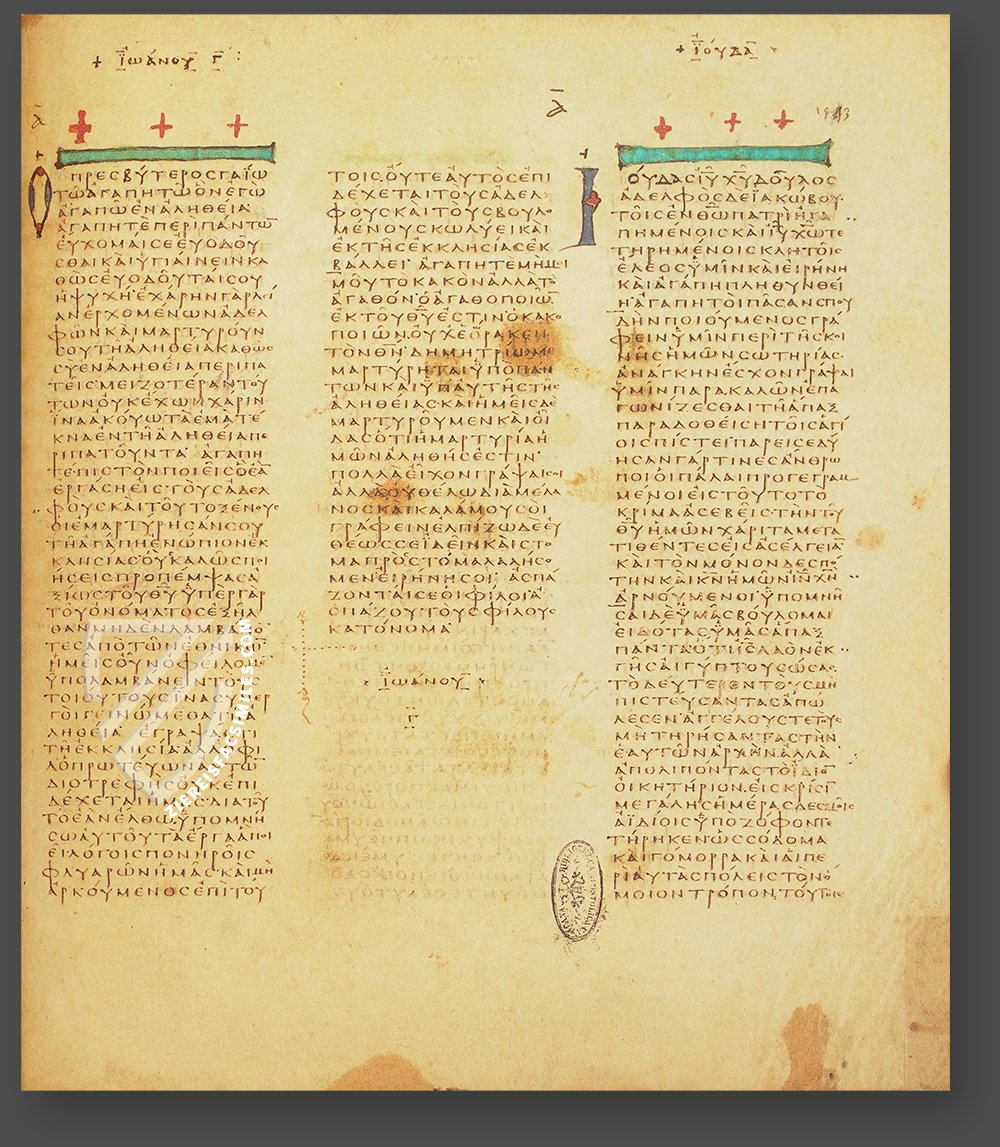 + ΙΩΑΝΟΥ Γ
ΟΠΡΕϹΒΥΤΕΡΟϹΓΑΙΩ
ΤΩΑΓΑΠΗΤΩΟΝΕΓΩ
ΑΓΑΠΩΕΝΑΛΗΘΕΙΑ
ΑΓΑΠΗΤΕΠΕΡΙΠΑΝΤΩ̅
ΕΥΧΟΜΑΙϹΕΕΥΟΔΟΥ
ϹΘΑΙΚΑΙΥΓΙΑΙΝΕΙΝΚΑ
ΘΩϹΕΥΟΔΟΥΤΑΙϹΟΥ
ΗΨΥΧΗΕΧΑΡΗΝΓΑΡΛΕΙ
ΑΝΕΡΧΟΜΕΝΩΝΑΔΕΛ
ΦΩΝΚΑΙΜΑΡΤΥΡΟΥΝ
ϹΟΥΤΗΑΛΗΘΕΙΑΚΑΘΩϹ
ϹΥΕΝΑΛΗΘΕΙΑΠΕΡΙΠΑ
ΤΕΙϹΜΕΙΖΟΤΕΡΑΝΤΟΥ
ΤΩΝΟΥΚΕΧΩΧΑΡΙΝ
ΙΝΑΑΚΟΥΩΤΑΕΜΑΤΕ
ΚΝΑΕΝΤΗΑΛΗΘΕΙΑΠΕ
ΡΙΠΑΤΟΥΝΤΑ ΑΓΑΠΗ
ΤΕΠΙϹΤΟΝΠΟΙΕΙϹΟΕΑ̅
ΕΡΓΑϹΗΕΙϹΤΟΥϹΑΔΕΛ
ΦΟΥϹΚΑΙΤΟΥΤΟΞΕΝΟΥϹ
ΟΙΕΜΑΡΤΥΡΗϹΑΝϹΟΥ
ΤΗΑΓΑΠΗΕΝΩΠΙΟΝΕΚ
ΚΛΗϹΙΑϹΟΥΚΑΛΩϹΠΟΙ
ΗϹΕΙϹΠΡΟΠΕΜΨΑϹΑ
ΞΙΩϹΤΟΥΘΥ̅ΥΠΕΡΓΑΡ
ΤΟΥΟΝΟΜΑΤΟϹΕΞΗΛ
ΘΑΝΜΗΔΕΝΛΑΜΒΑΝΟ̅
ΤΕϹΑΠΟΤΩΝΕΘΝΙΚΩ̅
ΗΜΕΙϹΟΥΝΟΦΕΙΛΟΜΕ̅
ΥΠΟΛΑΜΒΑΝΕΙΝΤΟΥϹ
ΤΟΙΟΥΤΟΥϹΙΝΑϹΥΝΕΡ
ΓΟΙΓΕΙΝΩΜΕΘΑΤΗΑ
ΛΗΘΕΙΑ ΕΓΡΑΨΑϹΤΙ
ΤΗΕΚΚΛΗϹΙΑΑΛΛΟΦΙ
ΛΟΠΡΩΤΕΥΩΝΑΥΤΩ̅
ΔΙΟΤΡΕΦΗϹΟΥΚΕΠΙ
ΔΕΧΕΤΑΙΗΜΑϹΔΙΑΤΟΥ
ΤΟΕΑΝΕΛΘΩΥΠΟΜΝΗ
ϹΩΑΥΤΟΥΤΑΕΡΓΑΑΠΟΙ
ΕΙΛΟΓΟΙϹΠΟΝΗΡΟΙϹ
ΦΛΥΑΡΩΝΗΜΑϹΚΑΙΜΗ
ΑΡΚΟΥΜΕΝΟϹΕΠΙΤΟΥ
ΤΟΙϹΟΥΤΕΑΥΤΟϹΕΠΙ
ΔΕΧΕΤΑΙΤΟΥϹΑΔΕΛ
ΦΟΥϹΚΑΙΤΟΥϹΒΟΥΛΟ
ΜΕΝΟΥϹΚΩΛΥΕΙΚΑΙ
ΕΚΤΗϹΕΚΚΛΗϹΙΑϹΕΚ
ΒΑΛΛΕΙ ΑΓΑΠΗΤΕΜΗΜΕΙ
ΜΟΥΤΟΚΑΚΟΝΑΛΛΑΤΟ
ΑΓΑΘΟΝΟΑΓΑΘΟΠΟΙΩ̅
ΕΚΤΟΥΘΥ̅ΕϹΤΙΝΟΚΑΚΟ
ΠΟΙΩΝΟΥΧΕΟΡΑΚΕΝ
ΤΟΝΘΝ̅ ΔΗΜΗΤΡΙΩΜΕ
ΜΑΡΤΥΡΗΤΑΙΥΠΟΠΑΝ
ΤΩΝΚΑΙΥΠΑΥΤΗϹΤΗϹ
ΑΛΗΘΕΙΑϹΚΑΙΗΜΕΙϹΔΕ
ΜΑΡΤΥΡΟΥΜΕΝΚΑΙΟΙ
ΔΑϹΟΤΙΗΜΑΡΤΥΡΙΑΗ
ΜΩΝΑΛΗΘΗϹΕϹΤΙΝ
ΠΟΛΛΑΕΙΧΟΝΓΡΑΨΑΙϹΟΙ
ΑΛΛΑΟΥΘΕΛΩΔΙΑΜΕΛΑ
ΝΟϹΚΑΙΚΑΛΑΜΟΥϹΟΙ
ΓΡΑΦΕΙΝΕΛΠΙΖΩΔΕΕΥ
ΘΕΩϹϹΕΙΔΕΙΝΚΑΙϹΤΟ
ΜΑΠΡΟϹΤΟΜΑΛΑΛΗϹΟ
ΜΕΝΕΙΡΗΝΗϹΟΙ ΑϹΠΑ
ΖΟΝΤΑΙϹΕΟΙΦΙΛΟΙΑ
ϹΠΑΖΟΥΤΟΥϹΦΙΛΟΥϹ
ΚΑΤΟΝΟΜΑ
ΙΩΑΝΟΥ
Γ
+ ΙΟΥΔΑ
ΙΟΥΔΑϹΙΥ̅ΧΥ̅ΔΟΥΛΟϹ
ΑΔΕΛΦΟϹΔΕΙΑΚΩΒΟΥ
ΤΟΙϹΕΝΘΩ̅ΠΑΤΡΙΗΓΑ
ΠΗΜΕΝΟΙϹΚΑΙΙΥ̅ΧΩ̅ΤΕ
ΤΗΡΗΜΕΝΟΙϹΚΛΗΤΟΙϹ
ΕΛΕΟϹΥΜΙΝΚΑΙΕΙΡΗΝΗ
ΚΑΙΑΓΑΠΗΠΛΗΘΥΝΘΕΙ
Η ΑΓΑΠΗΤΟΙΠΑϹΑΝϹΠΟΥ
ΔΗΝΠΟΙΟΥΜΕΝΟϹΓΡΑ
ΦΕΙΝΥΜΙΝΠΕΡΙΤΗϹΚΟΙ
ΝΗϹΗΜΩΝϹΩΤΗΡΙΑϹ
ΑΝΑΓΚΗΝΕϹΧΟΝΓΡΑΨΑΙ
ΥΜΙΝΠΑΡΑΚΑΛΩΝΕΠΑ
ΓΩΝΙΖΕϹΘΑΙΤΗΑΠΑΞ
ΠΑΡΑΔΟΘΕΙϹΗΤΟΙϹΑΓΙ
ΟΙϹΠΙϹΤΕΙΠΑΡΕΙϹΕΔΥ
ΗϹΑΝΓΑΡΤΙΝΕϹΑΝΘΡΩ
ΠΟΙΟΙΠΑΛΑΙΠΡΟΓΕΓΡΑΜ
ΜΕΝΟΙΕΙϹΤΟΥΤΟΤΟ
ΚΡΙΜΑΑϹΕΒΕΙϹΤΗΝΤΟΥ
ΘΥ̅ΗΜΩΝΧΑΡΙΤΑΜΕΤΑ
ΤΙΘΕΝΤΕϹΕΙϹΑϹΕΛΓΕΙΑ̅
ΚΑΙΤΟΝΜΟΝΟΝΔΕϹΠΟ
ΤΗΝΚΑΙΚΝ̅ΗΜΩΝΙΝ̅ΧΝ̅
ΑΡΝΟΥΜΕΝΟΙΥΠΟΜΝΗ
ϹΑΙΔΕΥΜΑϹΒΟΥΛΟΜΑΙ
ΕΙΔΟΤΑϹΥΜΑϹΑΠΑΞ
ΠΑΝΤΑΟΤΙΙϹ̅ΛΑΟΝΕΚ
ΓΗϹΑΙΓΥΠΤΟΥϹΩϹΑϹ
ΤΟΔΕΥΤΕΡΟΝΤΟΥϹΜΗ
ΠΙϹΤΕΥϹΑΝΤΑϹΑΠΩ
ΛΕϹΕΝΑΓΓΕΛΟΥϹΤΕΤΟΥϹ
ΜΗΤΗΡΗϹΑΝΤΑϹΤΗΝ
ΕΑΥΤΩΝΑΡΧΗΝΑΛΛΑ
ΑΠΟΛΙΠΟΝΤΑϹΤΟΙΔΙΟ̅
ΟΙΚΗΤΗΡΙΟΝΕΙϹΚΡΙϹΙ̅
ΜΕΓΑΛΗϹΗΜΕΡΑϹΔΕϹΜΟΙϹ
ΑΙΔΙΟΙϹΥΠΟΖΟΦΟΝΤΕ
ΤΗΡΗΚΕΝΩϹϹΟΔΟΜΑ
ΚΑΙΓΟΜΟΡΡΑΚΑΙΑΙΠΕ
ΡΙΑΥΤΑϹΠΟΛΕΙϹΤΟΝΟ
ΜΟΙΟΝΤΡΟΠΟΝΤΟΥΤΟΙϹ
ZIEREISFACSIMILES.COM